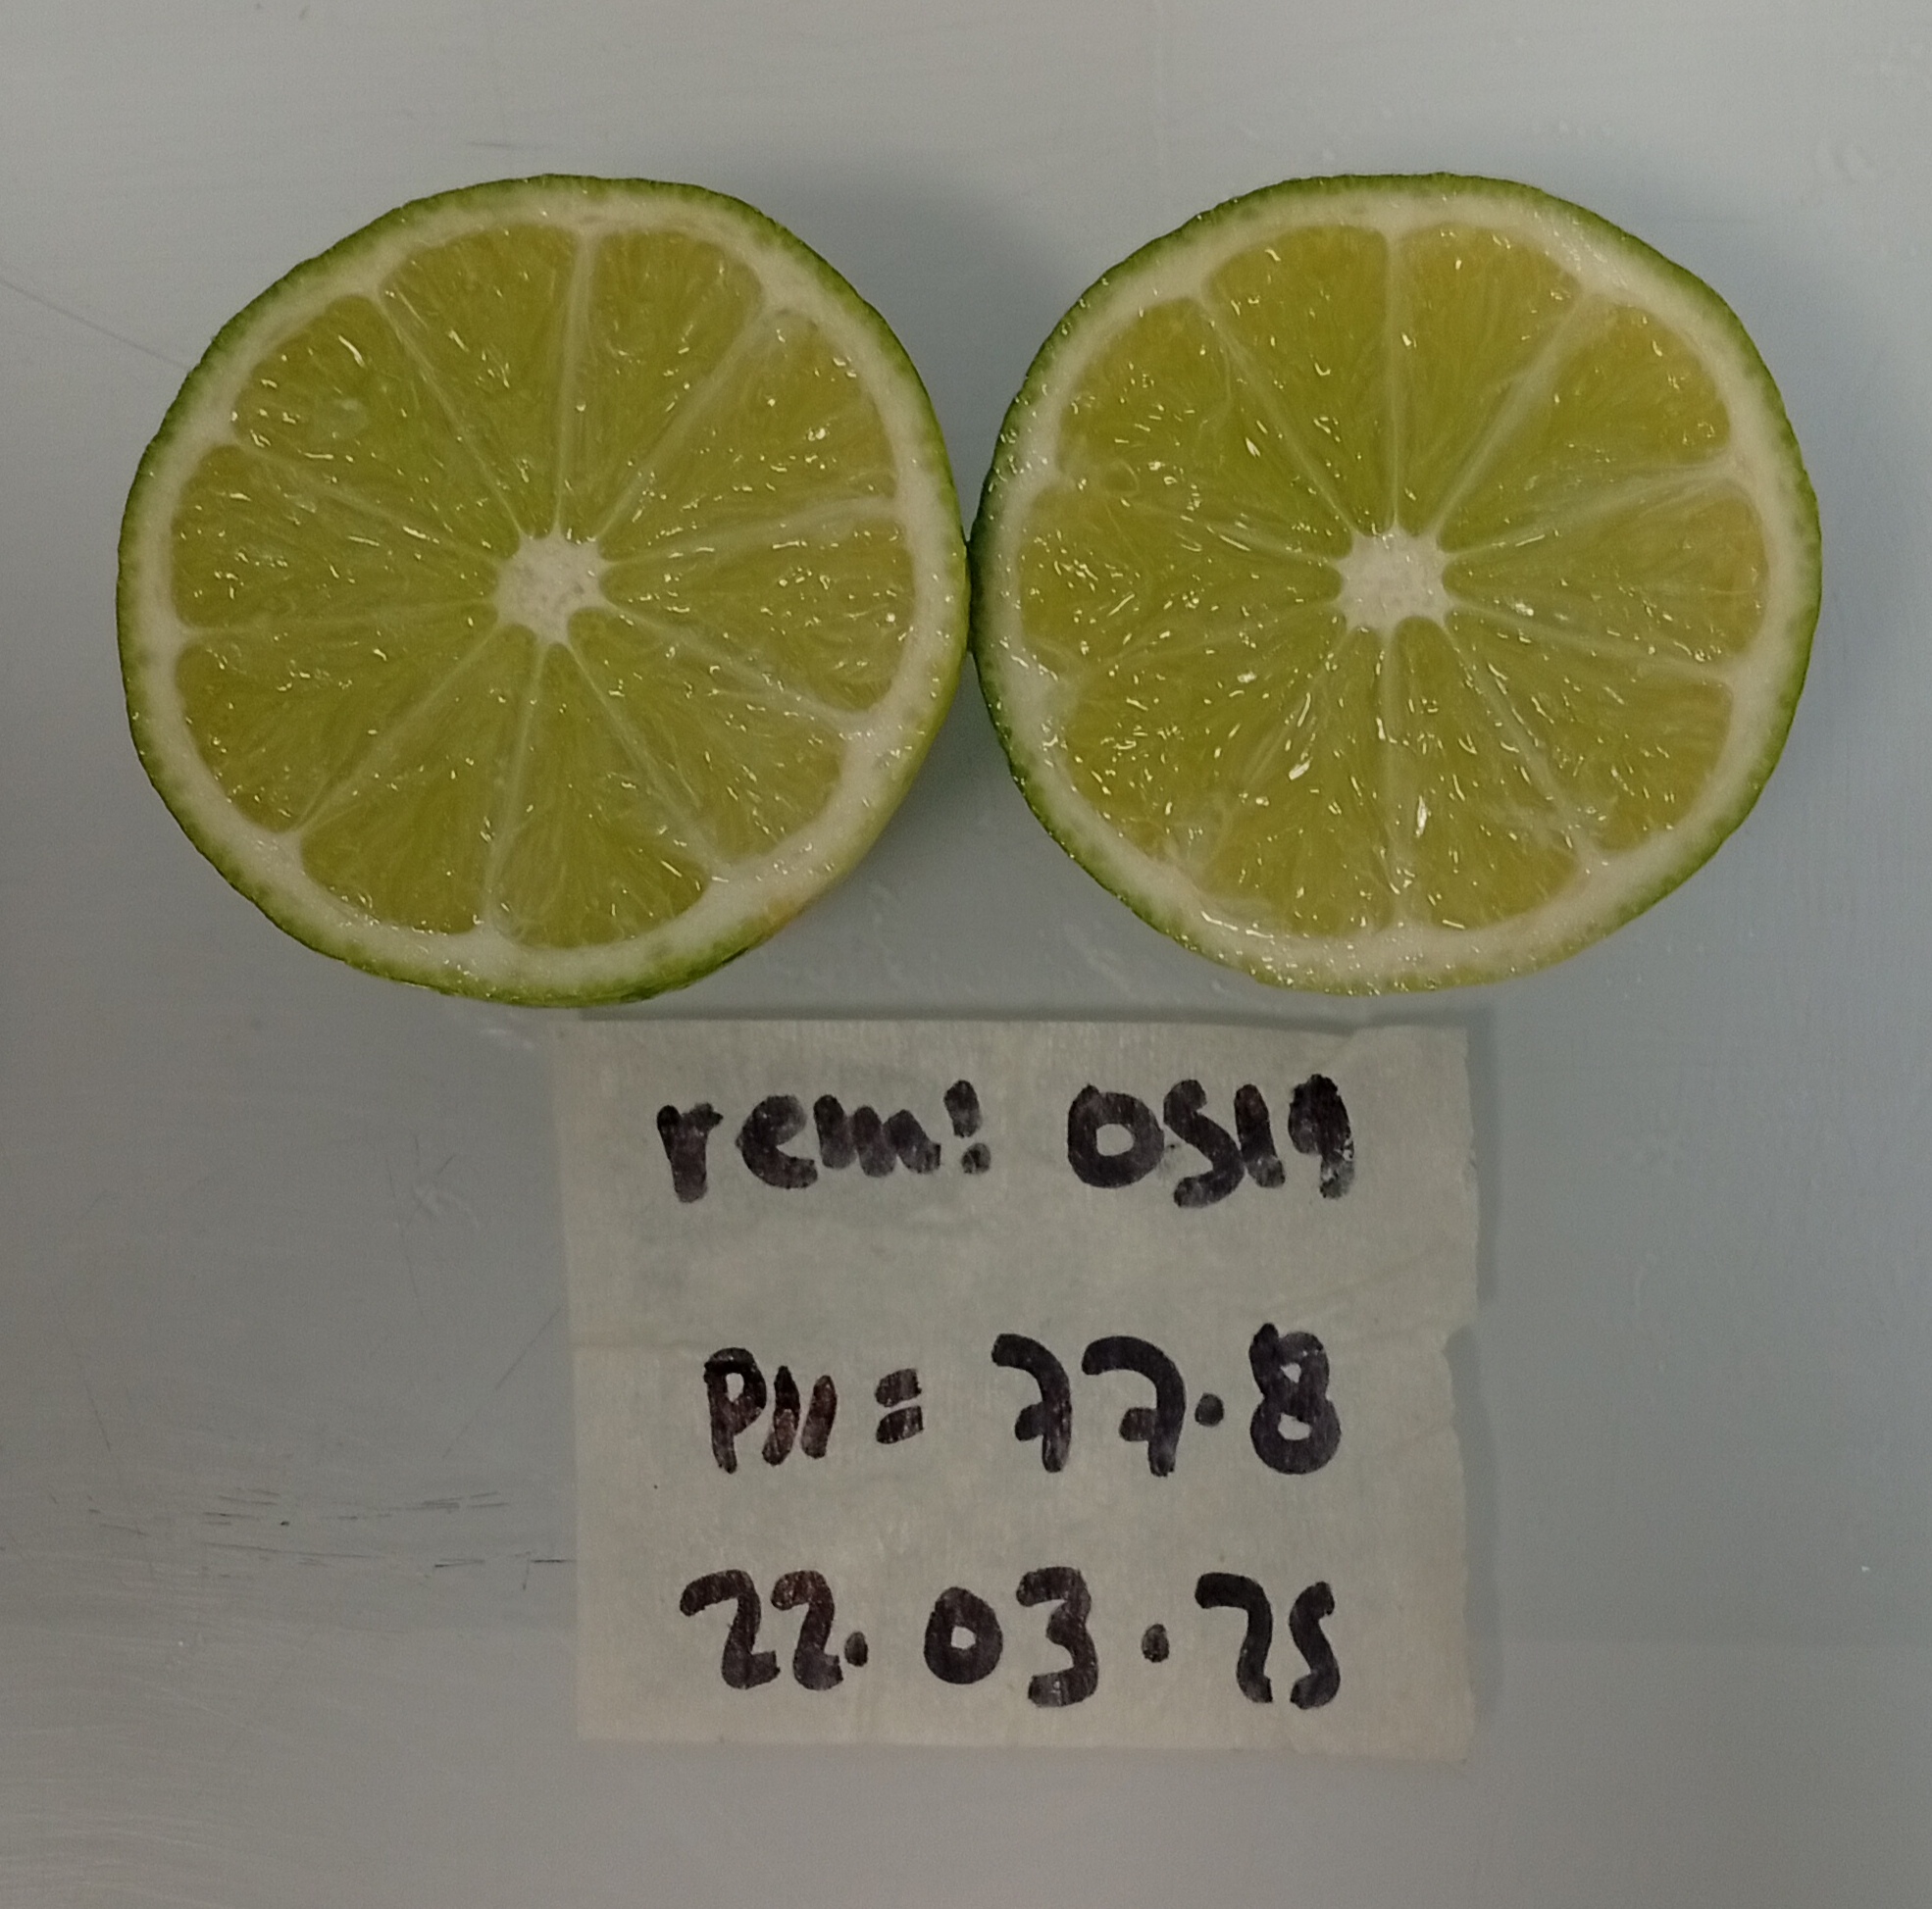 rem: 0519
PM = 77.8
22.03.25